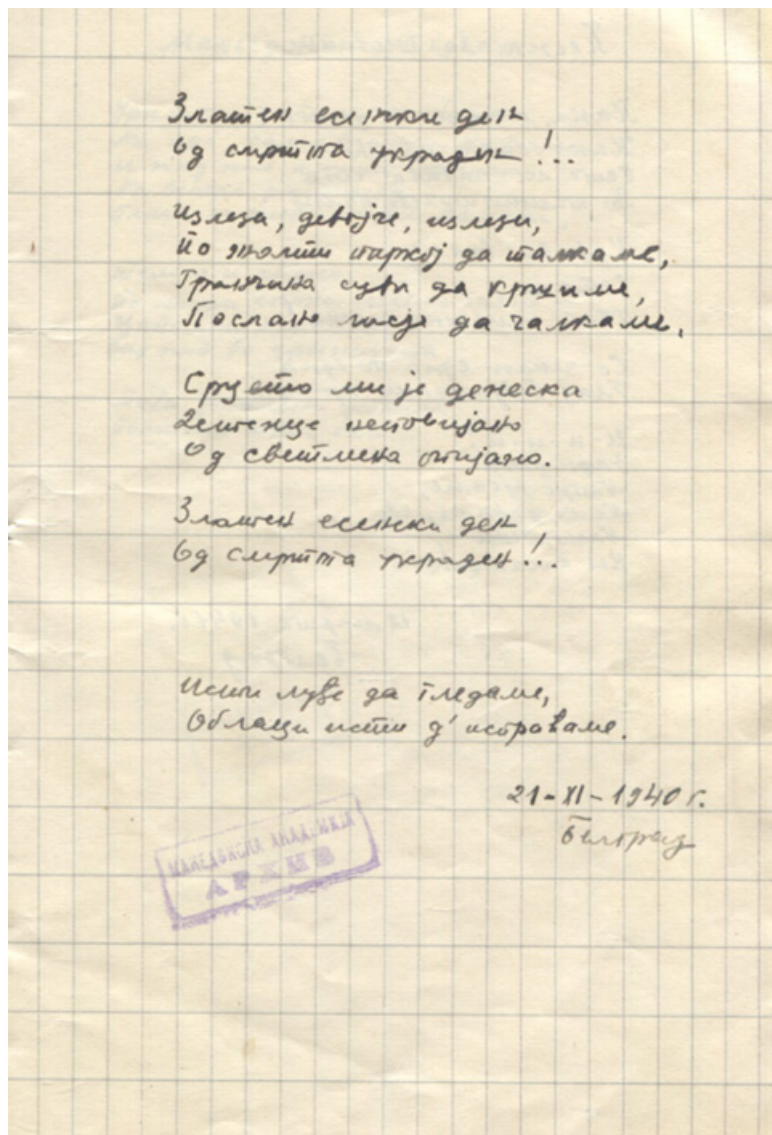 Златен есенски ден
Од смртта украден!..
Излези, девојче, излези,
По жолти паркој да талкаме,
Гранчина суви да кршиме,
Послано лисје да галкаме.
Срцето ми је денеска
Детенце неповијано
Од светлина опијано.
Златен есенски ден
Од смртта украден!..
Исти луѓе да гледаме,
Облаци исти д' исправаме.
21-XI-1940 г.
Белград
МАКЕДОНСКА АКАДЕМИЈА
АРХИВ